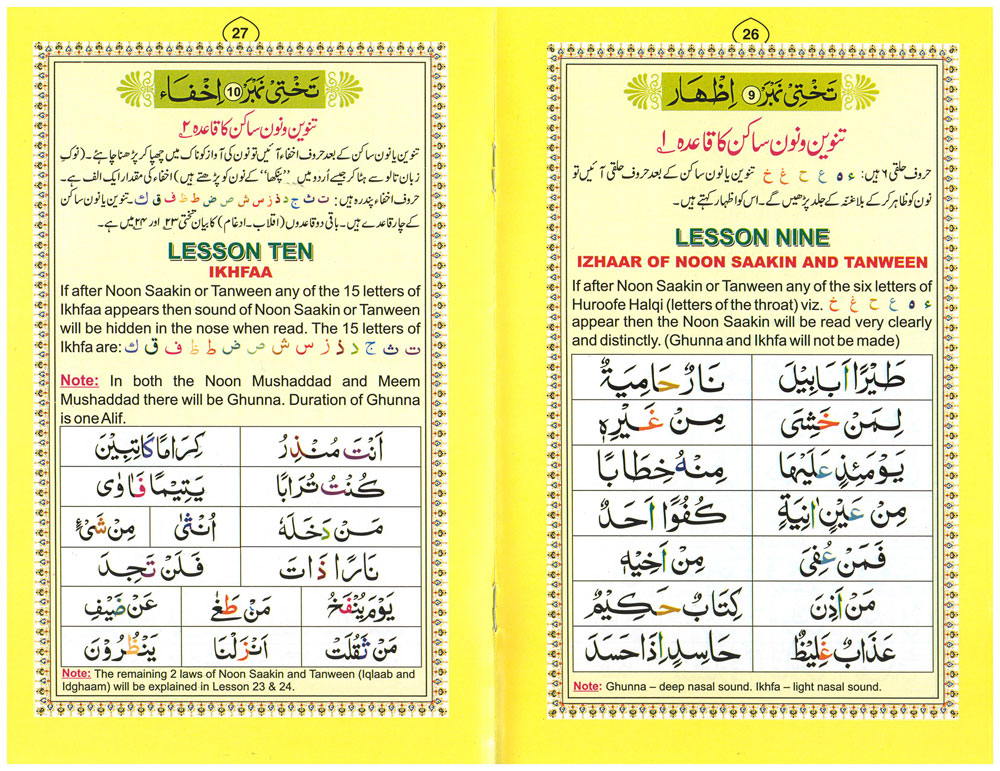 26
تختی نمبر ۹ اظہار
تنوین و نون ساکن کا قاعدہ ۱
حروف حلقی ۶ ہیں: ء ہ ع ح غ خ تنوین یا نون ساکن کے بعد حروف حلقی آئیں تو
نون کو ظاہر کر کے بلا غنہ کے جلد پڑھیں گے۔ اس کو اظہار کہتے ہیں۔
LESSON NINE
IZHAAR OF NOON SAAKIN AND TANWEEN
If after Noon Saakin or Tanween any of the six letters of
Huroofe Halqi (letters of the throat) viz. ء ہ ع ح غ خ
appear then the Noon Saakin will be read very clearly
and distinctly. (Ghunna and Ikhfa will not be made)
طَيْرًا اَبَابِيْلَ نَارٌ حَامِيَةٌ
لِمَنْ خَشِىَ مِنْ غَيْرِهٖ
يَوْمَئِذٍ عَلَيْهَا مِنْهُ خِطَابًا
مِنْ عَيْنٍ اٰنِيَةٍ كُفُوًا اَحَدٌ
فَمَنْ عُفِىَ مِنْ اَخِيْهِ
مَنْ اَذِنَ كِتَابٌ حَكِيْمٌ
عَذَابٌ غَلِيْظٌ حَاسِدٍ اِذَا حَسَدَ
Note: Ghunna – deep nasal sound. Ikhfa – light nasal sound.
27
تختی نمبر 10 اخفاء
تنوین و نون ساکن کا قاعدہ ۲
تنوین یا نون ساکن کے بعد حروف اخفاء آئیں تو نون کی آواز کو ناک میں چھپا کر پڑھنا چاہئے۔ (نوکِ
زبان تالو سے ہٹا کر جیسے اُردو میں "پنکھا" کے نون کو پڑھتے ہیں) اخفاء کی مقدار ایک الف ہے۔
حروف اخفاء پندرہ ہیں: ت ث ج د ذ ز س ش ص ض ط ظ ف ق ک۔ تنوین یا نون ساکن
کے چار قاعدے ہیں۔ باقی دو قاعدوں (اقلاب۔ ادغام) کا بیان تختی ۲۳ اور ۲۴ میں ہے۔
LESSON TEN
IKHFAA
If after Noon Saakin or Tanween any of the 15 letters of
Ikhfaa appears then sound of Noon Saakin or Tanween
will be hidden in the nose when read. The 15 letters of
Ikhfa are: ت ث ج د ذ ز س ش ص ض ط ظ ف ق ک
Note: In both the Noon Mushaddad and Meem
Mushaddad there will be Ghunna. Duration of Ghunna
is one Alif.
اَنْتَ مُنْذِرُ كِرَامًا كَاتِبِيْنَ
كُنْتُ تُرَابًا يَتِيْمًا فَاٰوٰى
مَنْ دَخَلَهٗ اُنْثٰى مِنْ شَىْءٍ
نَارًا ذَاتَ فَلَنْ تَجِدَ
يَوْمَ يُنْفَخُ مَنْ طَغٰى عَنْ ضَيْفِ
مَنْ ثَقُلَتْ اَنْزَلْنَا يَنْظُرُوْنَ
Note: The remaining 2 laws of Noon Saakin and Tanween (Iqlaab and
Idghaam) will be explained in Lesson 23 & 24.